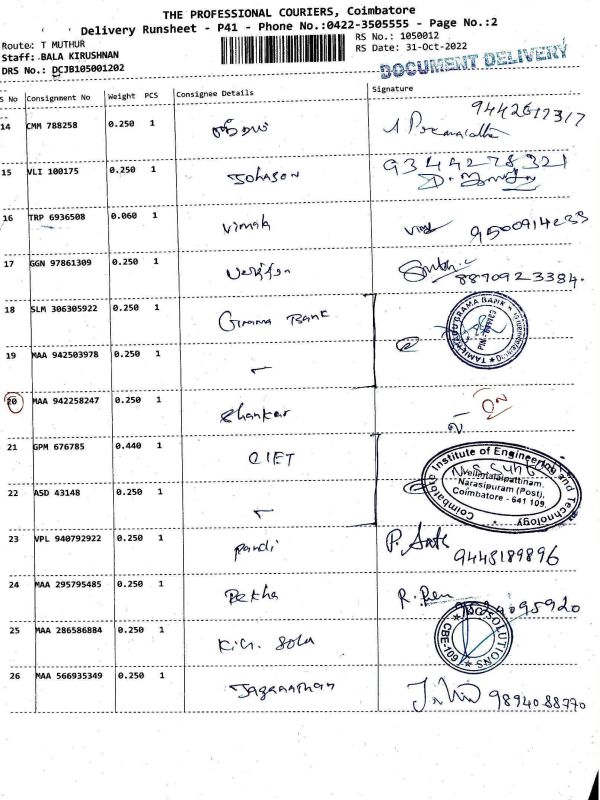 THE PROFESSIONAL COURIERS, Coimbatore
Delivery Runsheet - P41 - Phone No.:0422-3505555 - Page No.:2
Route: T MUTHUR
RS No.: 1050012
Staff: BALA KIRUSHNAN
RS Date: 31-Oct-2022
DRS No.: DCJB105001202
DOCUMENT DELIVERY
S No Consignment No Weight PCS Consignee Details Signature
14 CMM 788258 0.250 1
15 VLI 100175 0.250 1 Johnson 9344278321
16 TRP 6936508 0.060 1 Vimah
17 GGN 97861309 0.250 1 8870923384.
18 SLM 306305922 0.250 1 Grama Bank
TAMILNADU GRAMA BANK
19 MAA 942503978 0.250 1
20 MAA 942258247 0.250 1 Shankar
21 GPM 676785 0.440 1 CIET
Coimbatore Institute of Engineering and Technology
Vellimalaipattinam,
Narasipuram (Post),
Coimbatore - 641 109.
22 ASD 43148 0.250 1
23 VPL 940792922 0.250 1 Pandi 9448189896
24 MAA 295795485 0.250 1 Rekha
25 MAA 286586884 0.250 1
SOLUTIONS
CBE-109
26 MAA 566935349 0.250 1 Jaganathan 9894088770